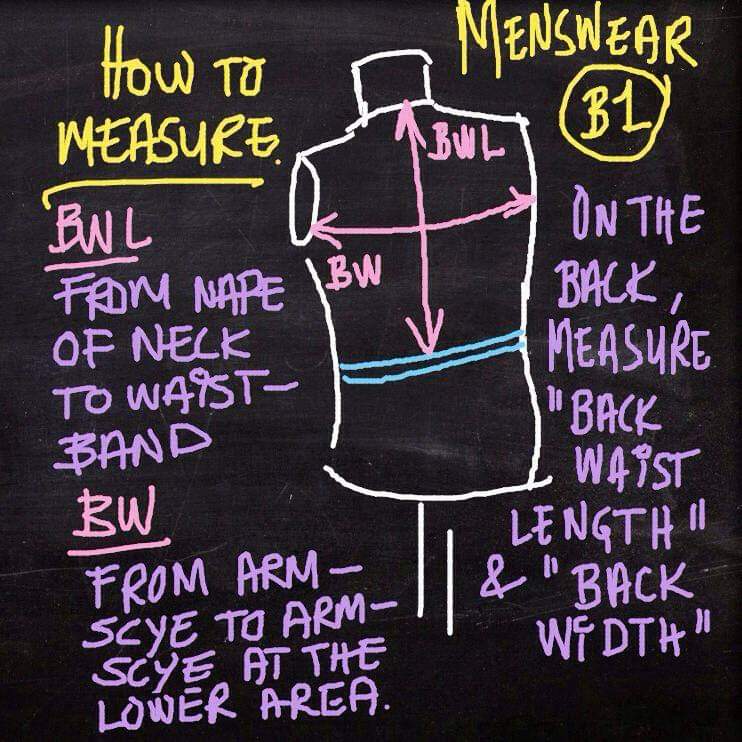 HOW TO
MEASURE.
BWL
FROM NAPE
OF NECK
TO WAIST-
BAND
BW
FROM ARM-
SCYE TO ARM-
SCYE AT THE
LOWER AREA.
BWL
BW
MENSWEAR
B1
ON THE
BACK,
MEASURE
"BACK
WAIST
LENGTH"
& "BACK
WIDTH"